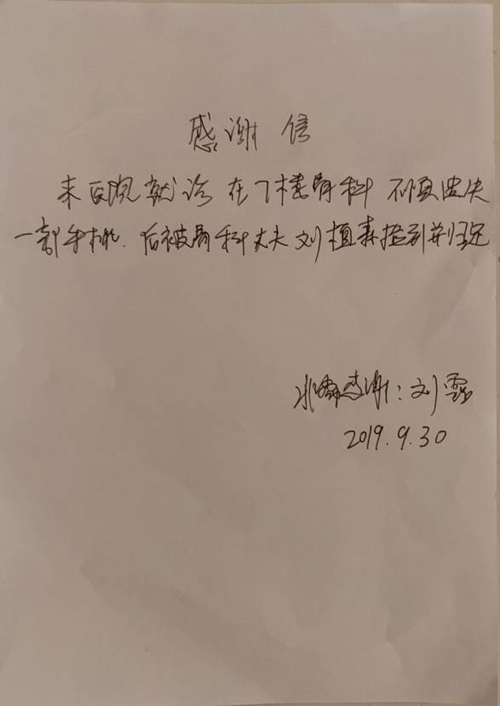 感谢信
来医院就诊在7楼骨科不慎遗失
一部手机.后被骨科大夫刘植森捡到并归还
感谢:刘霞
2019.9.30